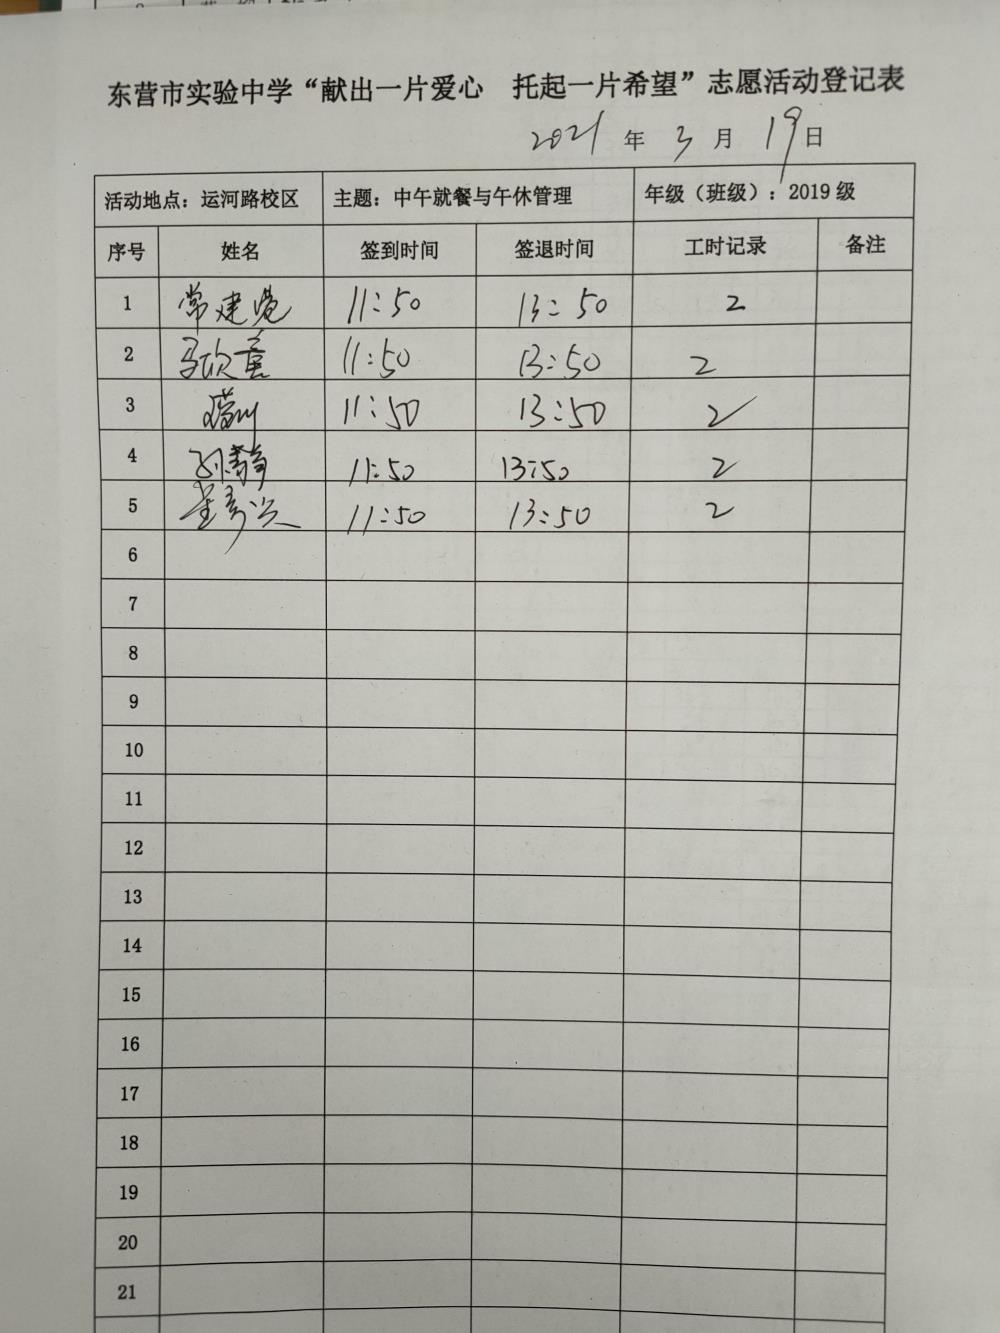 东营市实验中学“献出一片爱心 托起一片希望”志愿活动登记表
2021 年 3 月 19 日
活动地点：运河路校区 主题：中午就餐与午休管理 年级（班级）：2019 级
序号 姓名 签到时间 签退时间 工时记录 备注
1 常建港 11:50 13:50 2
2 11:50 13:50 2
3 11:50 13:50 2
4 孙静 11:50 13:50 2
5 11:50 13:50 2
6
7
8
9
10
11
12
13
14
15
16
17
18
19
20
21